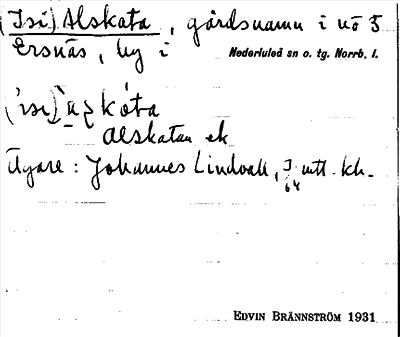 (Isi) Alskata, gårdsnamn i nö 5
Ersnäs, by i Nederluleå sn o. tg. Norrb. l.
kóta
alskatan ek
Ägare: Johannes Lindvall, kh.
EDVIN BRÄNNSTRÖM 1931